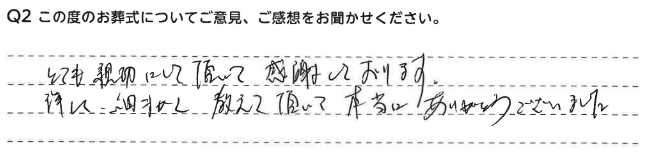 Q2 この度のお葬式についてご意見、ご感想をお聞かせください。
とても親切にして頂いて感謝しております。
細かく教えて頂いて本当にありがとうございました